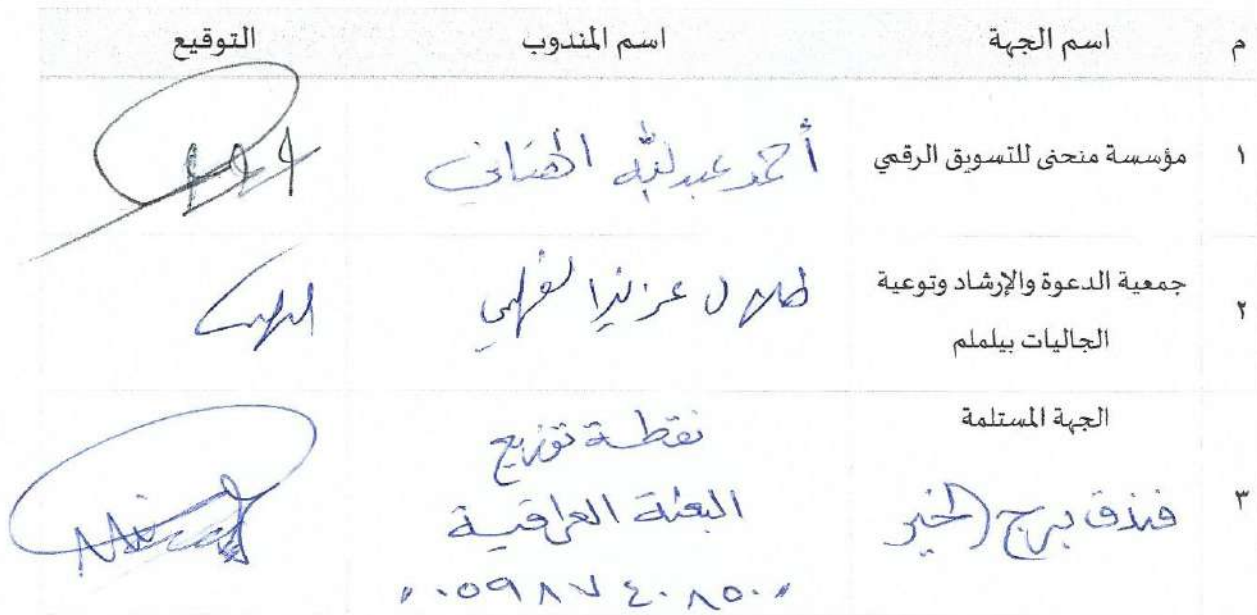 م اسم الجهة اسم المندوب التوقيع
١ مؤسسة منحنى للتسويق الرقمي أحمد عبدالله
٢ جمعية الدعوة والإرشاد وتوعية الجاليات بيلملم طلال عزيز الفهمي
الجهة المستلمة
٣ فندق برج الخير
نقطة توزيع
البعثة العراقية